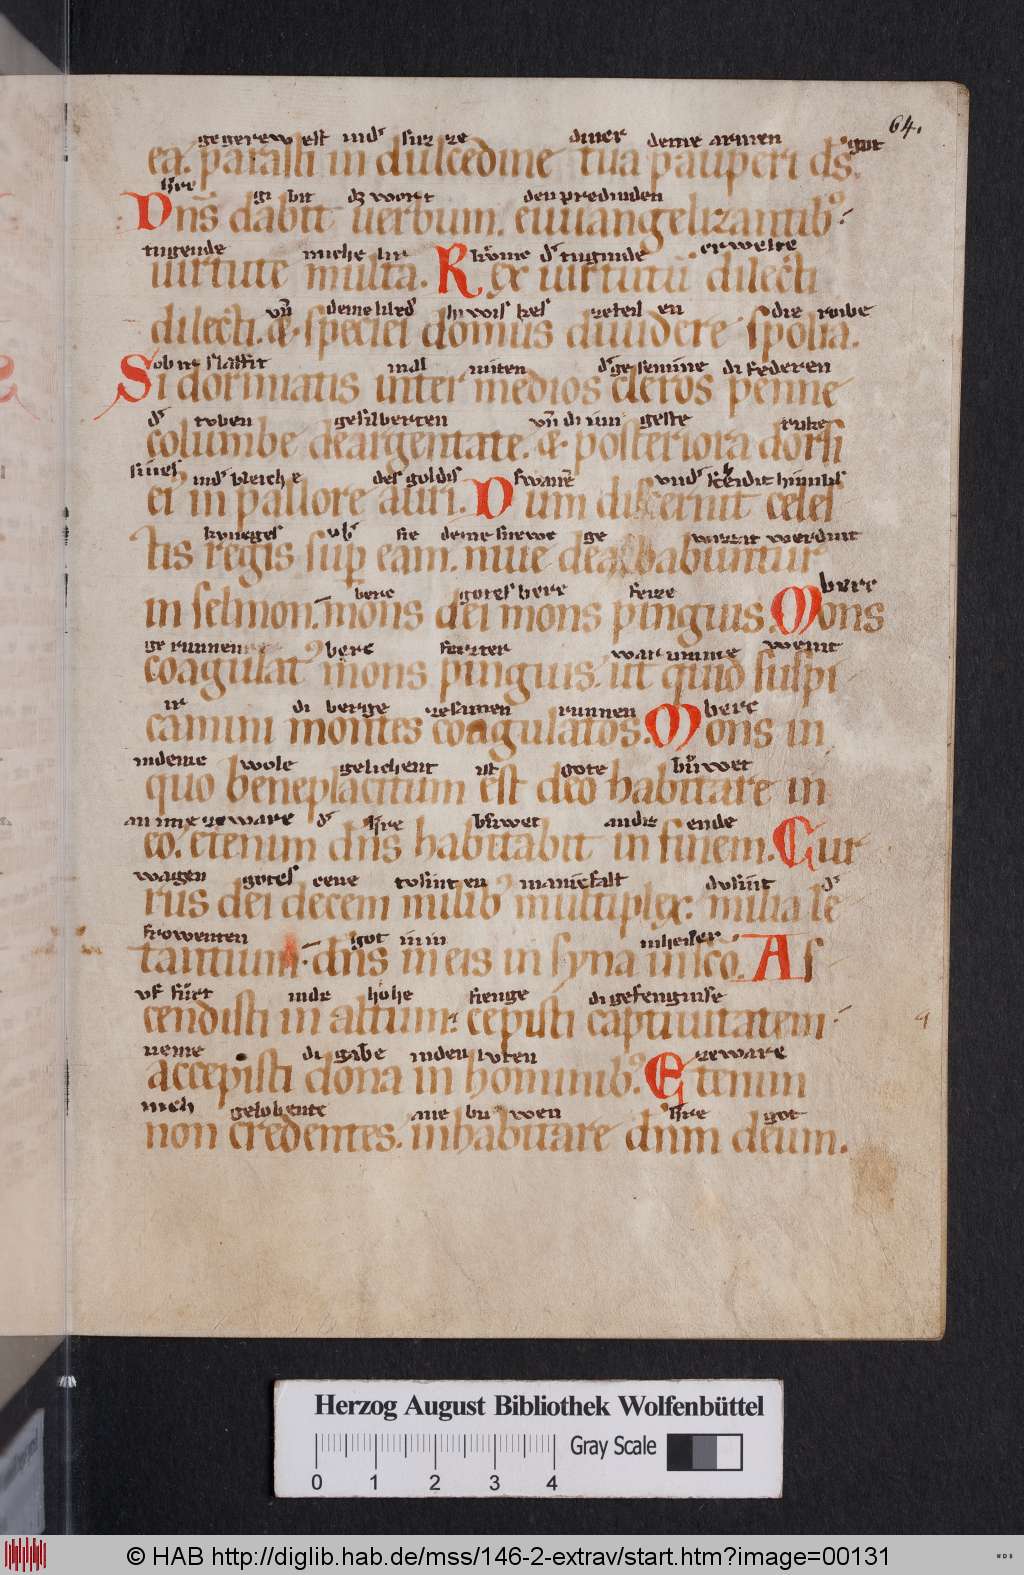 64.
gegerewest indˢ suzze diner deme armen got
ea. parasti in dulcedine tua pauperi dˢ.
hˢre gi bit dz wort den predinden
Dns̄ dabit uerbum. euuangelizantib⁹
tugende miche lir kv̊nic dˢ tuginde erwelte
uirtute multa. Rex uirtutū dilecti
vn̄ deme hus teil en die roube
dilecti. & speciei domus diuidere spolia.
ob ir slaffit indˢ miten di federen
Si dormiatis inter medios cleros penne
dˢ tvben gesilberten vn̄ di geste ruke
columbe deargentate. & posteriora dorsi
sines indˢ bleiche des goldis swane vndˢ
ei⁹ in pallore auri. Dum discernit celes
kvneges vbˢ sie deme snewe ge wizzit werdint
tis regis sup eam. niue dealbabuntur
berc gotes berc feize berc
in selmon. mons dei mons pinguis. Mons
gerunnen berc feizter warumme wenit
coagulat⁹ mons pinguis. ut quid suspi
ir di berge gesamen runnen berc
camini montes coagulatos. Mons in
indeme wole gelichent ist gote bůwet
quo beneplacitum est deo habitare in
an ime geware dˢ hˢre bůwet andiz ende
eo. etenim dn̄s habitabit in finem. Cur
wagen gotes cene tvsinten manicfalt dvsint dˢ
rus dei decem milib⁹ multiplex. milia le
frowenten got in in inheiler
tantium. dn̄s in eis in syna in sc̄o. As
vf fůrt indie hohe fienge di gefengnise
cendisti in altum. cepisti captiuitatem
neme di gabe inden lvten geware
accepisti dona in hominib⁹. Etenim
nich gelobente ane bu wen hˢre got
non credentes. inhabitare dn̄m deum.
Herzog August Bibliothek Wolfenbüttel
Gray Scale
0 1 2 3 4
© HAB http://diglib.hab.de/mss/146-2-extrav/start.htm?image=00131